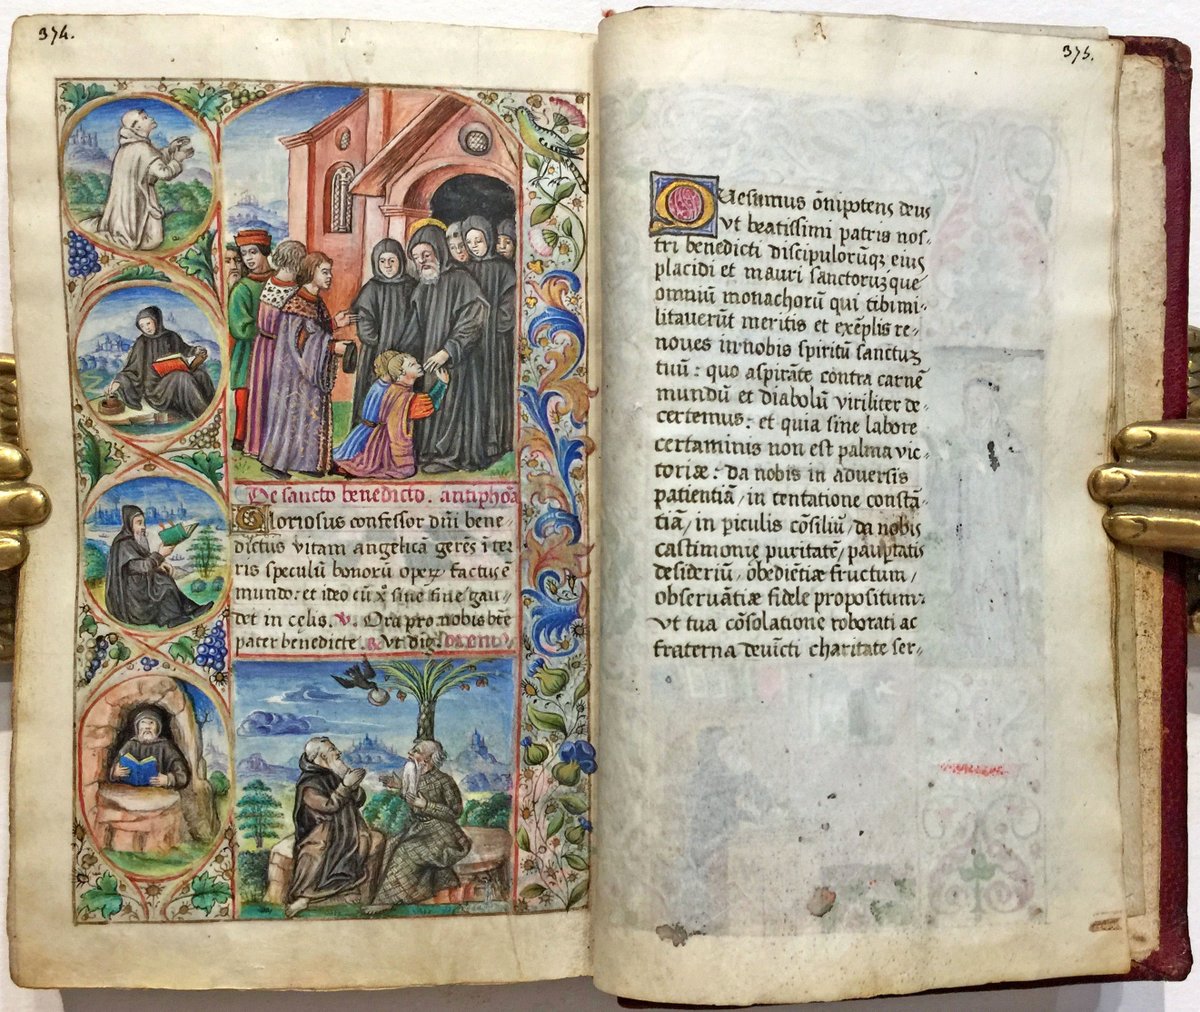 374.
De sancto benedicto. antiphõa
Gloriosus confessor dñi bene-
dictus vitam angelicã gerẽs ĩ ter
ris speculũ bonorũ operꝝ factus ẽ
mundo: et ideo cũ xp̃o sine fine gau-
det in celis. ℣. Ora pro nobis bt̃e
pater benedicte. ℟ Ut dig. Orem9
375.
Quesumus õnipotens deus
vt beatissimi patris nos-
tri benedicti discipulorũqꝫ eius
placidi et mauri sanctorũqꝫ que
omniũ monachorũ qui tibi mi-
litaverũt meritis et exẽplis re-
noues in nobis spiritũ sanctuꝫ
tuũ: quo aspirãte contra carnẽ
mundũ et diabolũ viriliter de-
certemus: et quia sine labore
certaminis non est palma vic-
toriæ: da nobis in adversis
patientiã/ in tentatione constã-
tiã/ in piculis cõsiliũ/ da nobis
castimonię puritatẽ/ paupertatis
desideriũ/ obediẽtiæ fructum/
observãtiæ fidele propositum:
vt tua cõsolatione roborati ac
fraterna deuĩcti charitate ser-